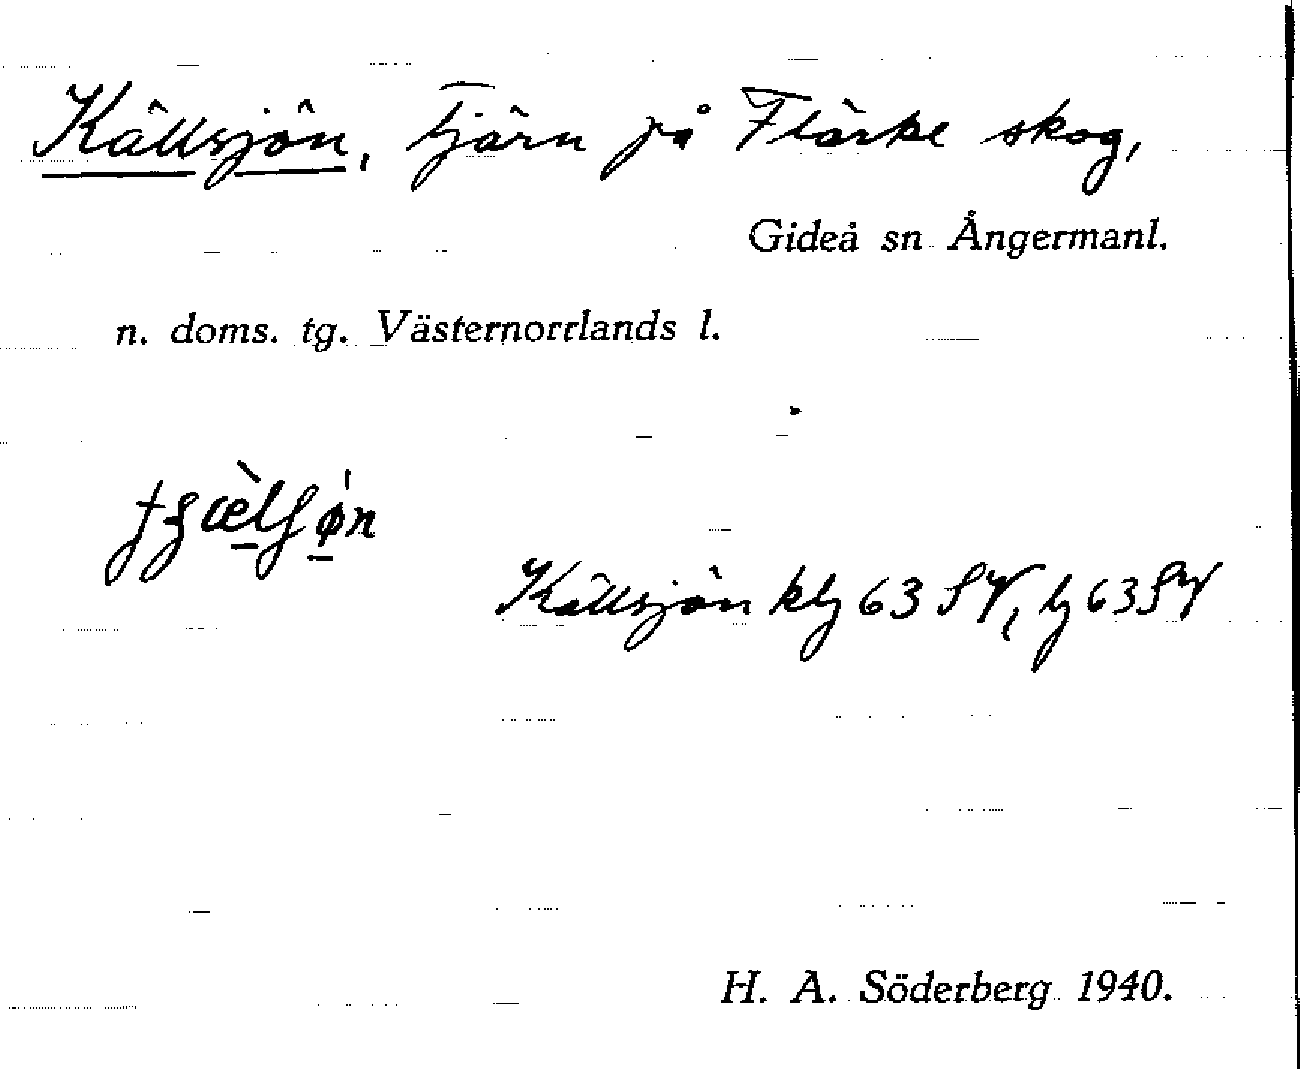 Källsjön, tjärn på Flärke skog,
Gideå sn Ångermanl.
n. doms. tg. Västernorrlands l.
Källsjön kbl 63 SV, bl 63 SV
H. A. Söderberg 1940.